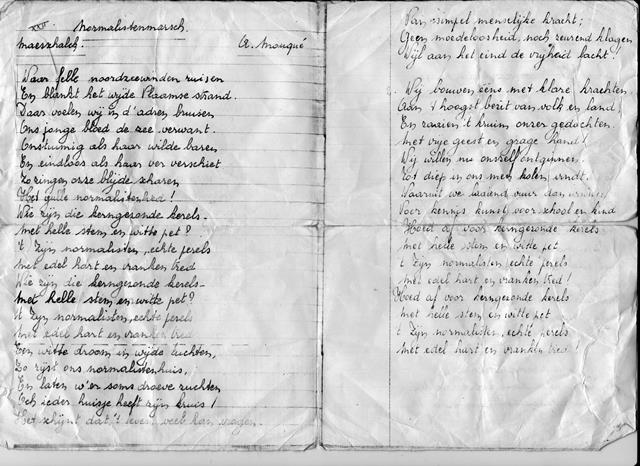 Normalistenmarsch.
Maerschalck. A. Mouqué
Waar felle noordzeewinden ruisen
En blankt het wijde Vlaamse strand.
Daar voelen wij in d'adren bruisen
Ons jonge bloed de zee verwant.
Onstuimig als haar wilde baren
En eindloos als haar ver verschiet
Zo zingen onze blijde scharen
Het gulle normalistenlied!
Wie zijn die kerngezonde kerels
Met helle stem en witte pet?
't Zijn normalisten, echte perels
Met edel hart en vranken tred
Wie zijn die kerngezonde kerels
Met helle stem en witte pet?
't Zijn normalisten, echte perels
Met edel hart en vranken tred
Een witte droom in wijde luchten,
Zo rijst ons normalistenhuis,
En laten w'er soms droeve zuchten
Och ieder huisje heeft zijn kruis!
Het schijnt dat 't leven veel kan vragen.
Van simpel menselijke kracht;
Geen moedeloosheid, noch zeurend klagen
Wijl aan het eind de vrijheid lacht!
Wij bouwen eens met klare krachten
Aan 't hoogst bezit van volk en land!
En zaaien 't kruim onzer gedachten
Met vrije geest en grage hand!
Wij willen nu onszelf ontginnen
Tot diep in ons met kolen
Waaruit we laaiend vuur dan
Voor kennis kunst, voor school en kind
Hoed af voor kerngezonde kerels
Met helle stem en witte pet
't Zijn normalisten, echte perels
Met edel hart en vranken tred!
Hoed af voor kerngezonde kerels
Met helle stem en witte pet
't Zijn normalisten, echte perels
Met edel hart en vranken tred